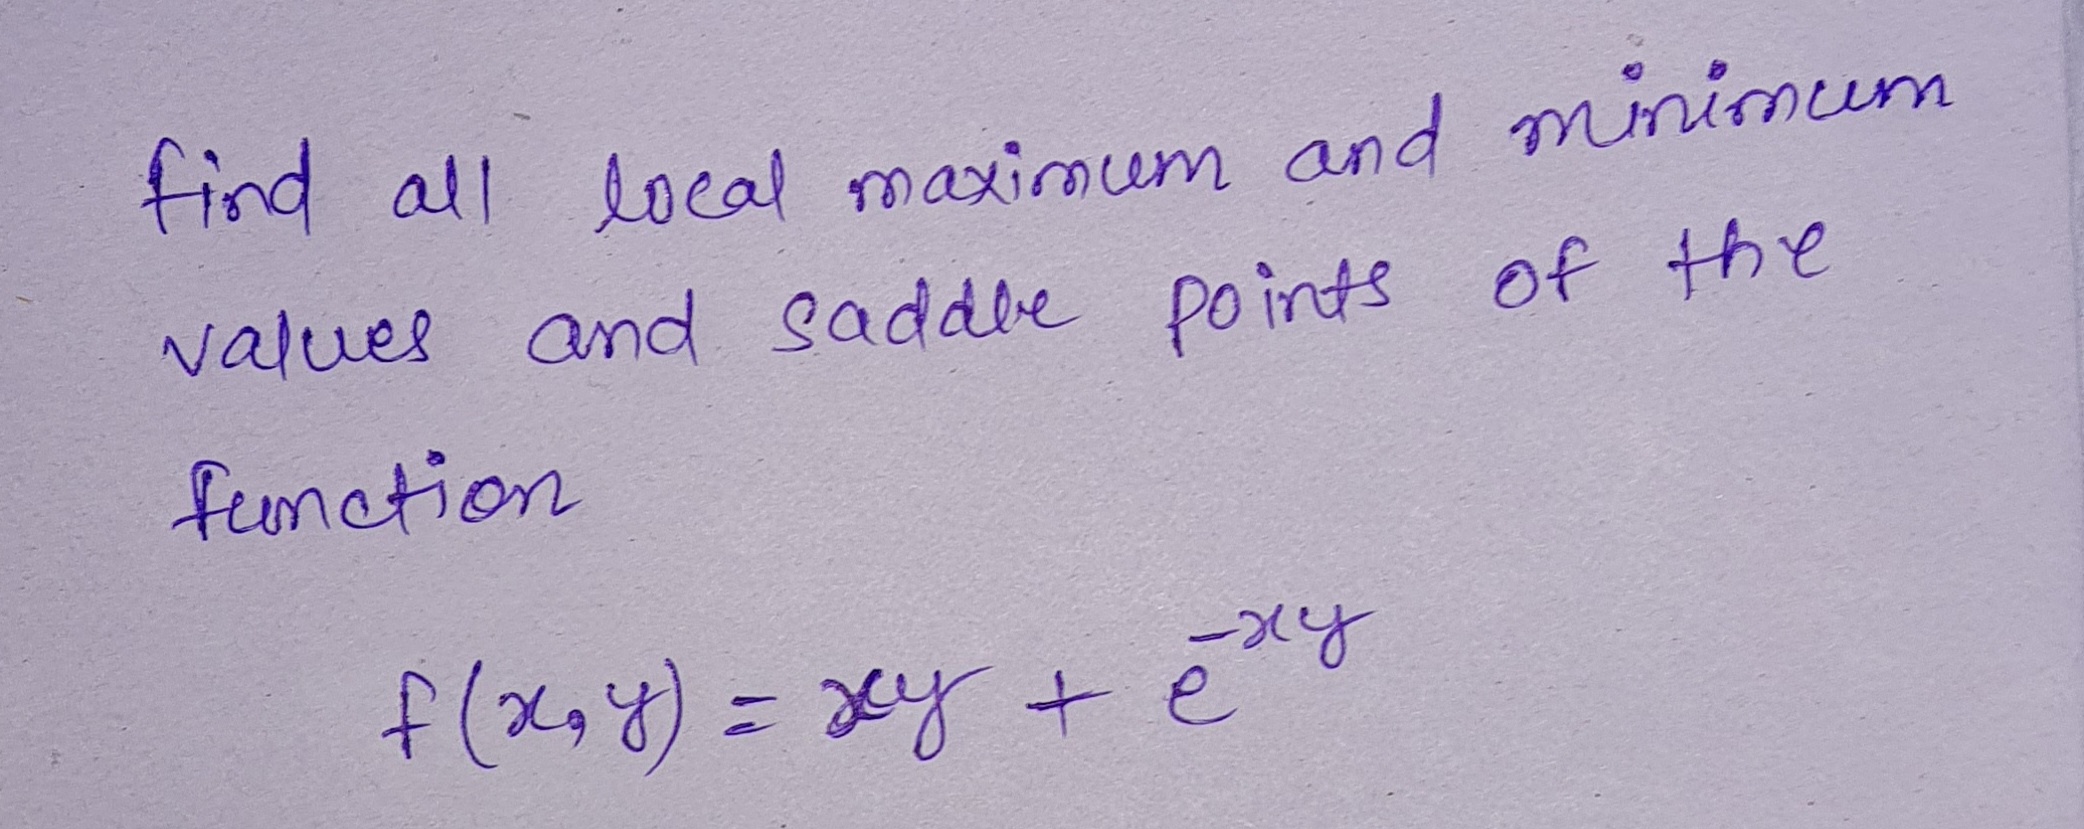 find all local maximum and minimum
values and saddle points of the
function
f(x,y) = xy + e^{-xy}